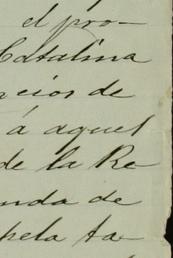 el pro-
Catalina
ncios de
á aquel
de la Re
nda de
pela ta-